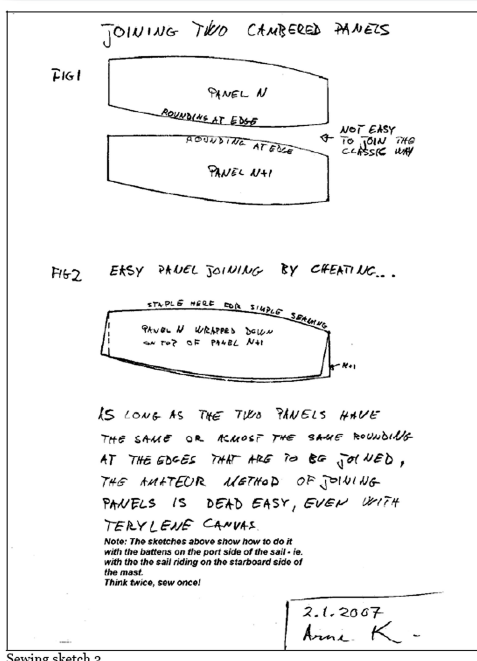 JOINING TWO CAMBERED PANELS
FIG1
PANEL N
ROUNDING AT EDGE
ROUNDING AT EDGE
NOT EASY
TO JOIN THE
CLASSIC WAY
PANEL N+1
FIG2 EASY PANEL JOINING BY CHEATING...
STAPLE HERE FOR SIMPLE SEAMING
PANEL N WRAPPED DOWN
ON TOP OF PANEL N+1
N+1
AS LONG AS THE TWO PANELS HAVE
THE SAME OR ALMOST THE SAME ROUNDING
AT THE EDGES THAT ARE TO BE JOINED,
THE AMATEUR METHOD OF JOINING
PANELS IS DEAD EASY, EVEN WITH
TERYLENE CANVAS.
Note: The sketches above show how to do it
with the battens on the port side of the sail - ie.
with the the sail riding on the starboard side of
the mast.
Think twice, sew once!
2.1.2007
Arne K -
Sewing sketch 2